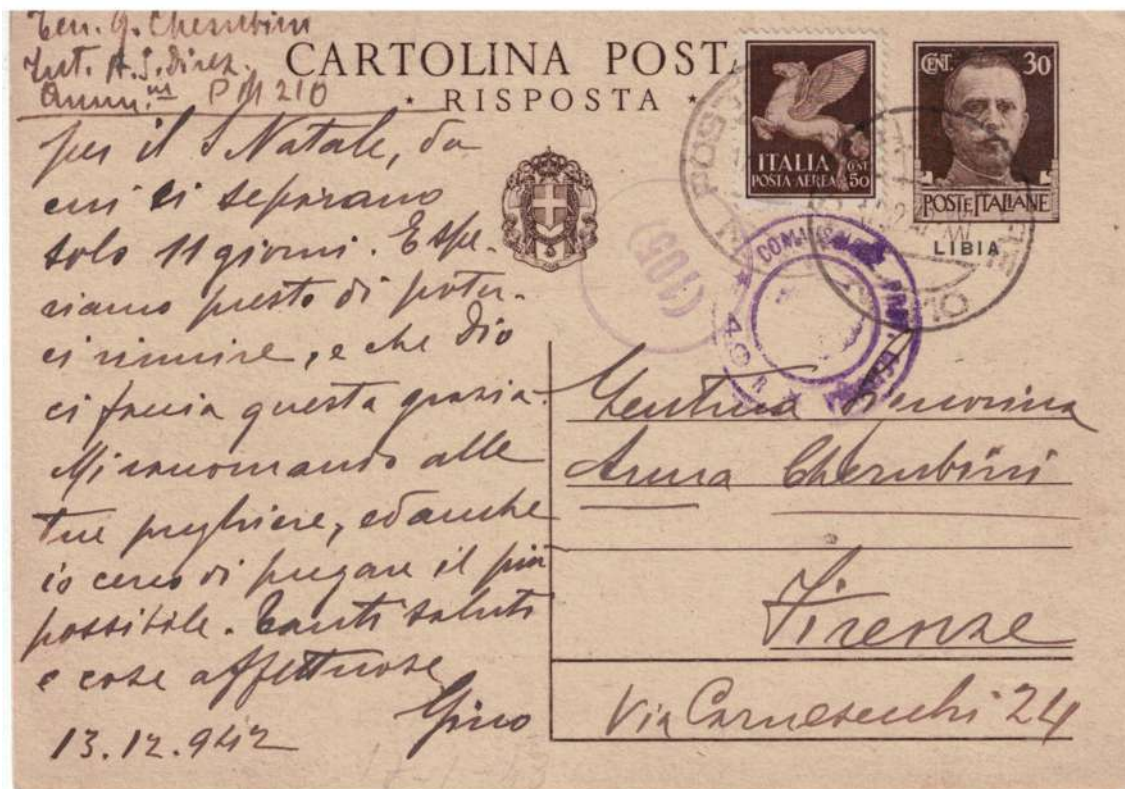 Ten. G. Cherubini
Int. A.S. Direz.
Amm.ne PM 210
CARTOLINA POST
RISPOSTA
ITALIA
POSTA AEREA
CENT. 50
CENT. 30
POSTE ITALIANE
LIBIA
(105)
40R
per il S Natale, da
cui ci separano
solo 11 giorni. E spe-
riamo presto di poter-
ci riunire, e che Dio
ci faccia questa grazia.
Mi raccomando alle
tue preghiere, ed anche
io cerco di pregare il più
possibile. Tanti saluti
e cose affettuose
Gino
13.12.942
Gentma Signorina
Anna Cherubini
Firenze
Via Carnesecchi 24